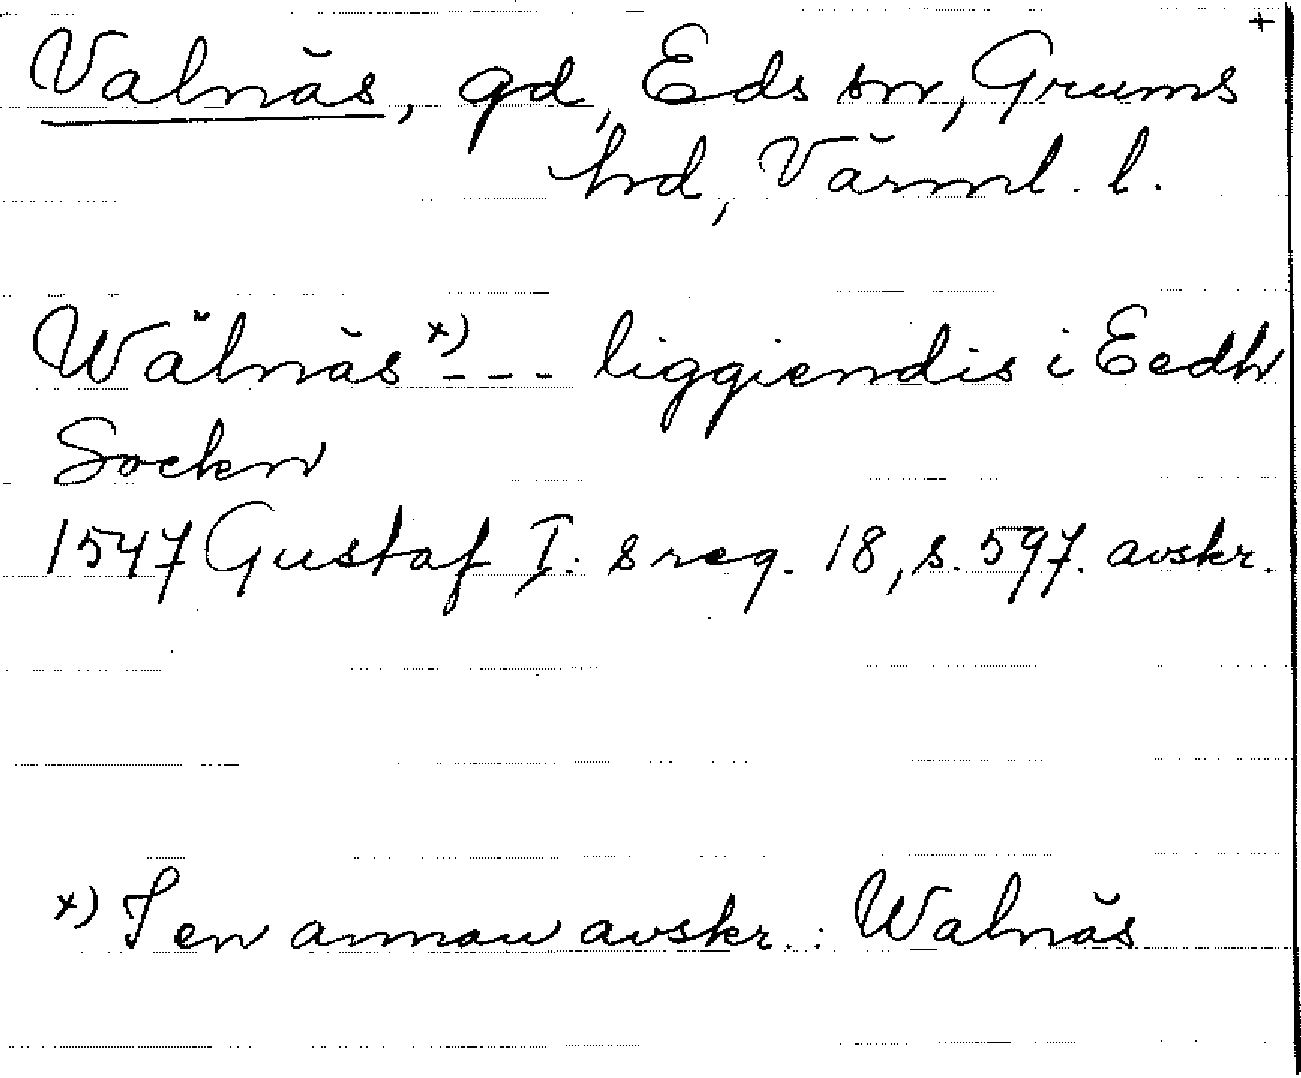 +
Valnäs, gd, Eds sn, Grums
hd, Värml. l.
Wälnäs x) --- liggiendis i Eedh
Sockn
1547 Gustaf I:s reg. 18, s. 597. avskr.
x) I en annan avskr.: Walnäs